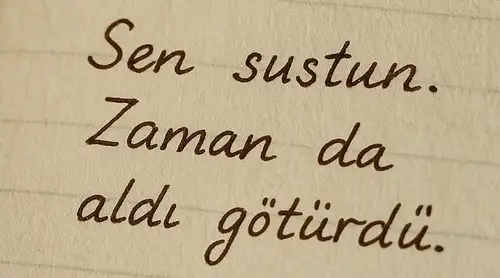 Sen sustun.
Zaman da
aldı götürdü.